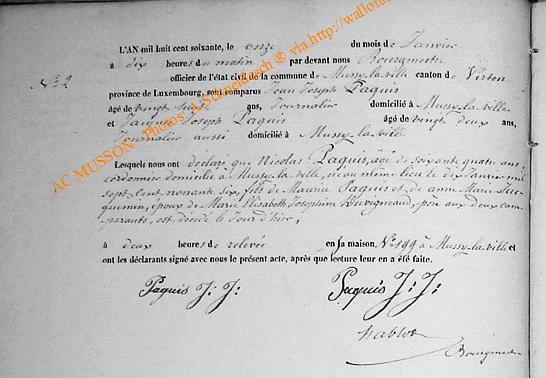 L'AN mil huit cent soixante, le onze du mois de Janvier
à dix heures du matin par devant nous Bourgmestre
N° 2
officier de l'état civil de la commune de Mussy-la-ville canton de Virton
province de Luxembourg, sont comparus Jean Joseph Paquis
âgé de vingt ans, Journalier domicilié à Mussy-la-ville
et Jacques Joseph Paquis âgé de vingt deux ans,
Journalier aussi domicilié à Mussy-la-ville
Lesquels nous ont déclaré que Nicolas Paquis, âgé de soixante quatre ans,
cordonnier domicilié à Mussy-la-ville, né au même lieu le dix Janvier mil
sept cent nonante six, fils de Maurice Paquis et de anne Marie Jac-
quemin, époux de Marie Elisabeth Josephine Duvigneaud, père aux deux com-
parants, est décédé le Jour d'hier,
à deux heures de relevée en sa maison, N° 199 à Mussy-la-ville et
ont les déclarants signé avec nous le présent acte, après que lecture leur en a été faite.
Paquis J: J: Paquis J: J:
hablot
Bourgmestre
AC MUSSON - Photos: A. Schneidesch ® via http://wallonia